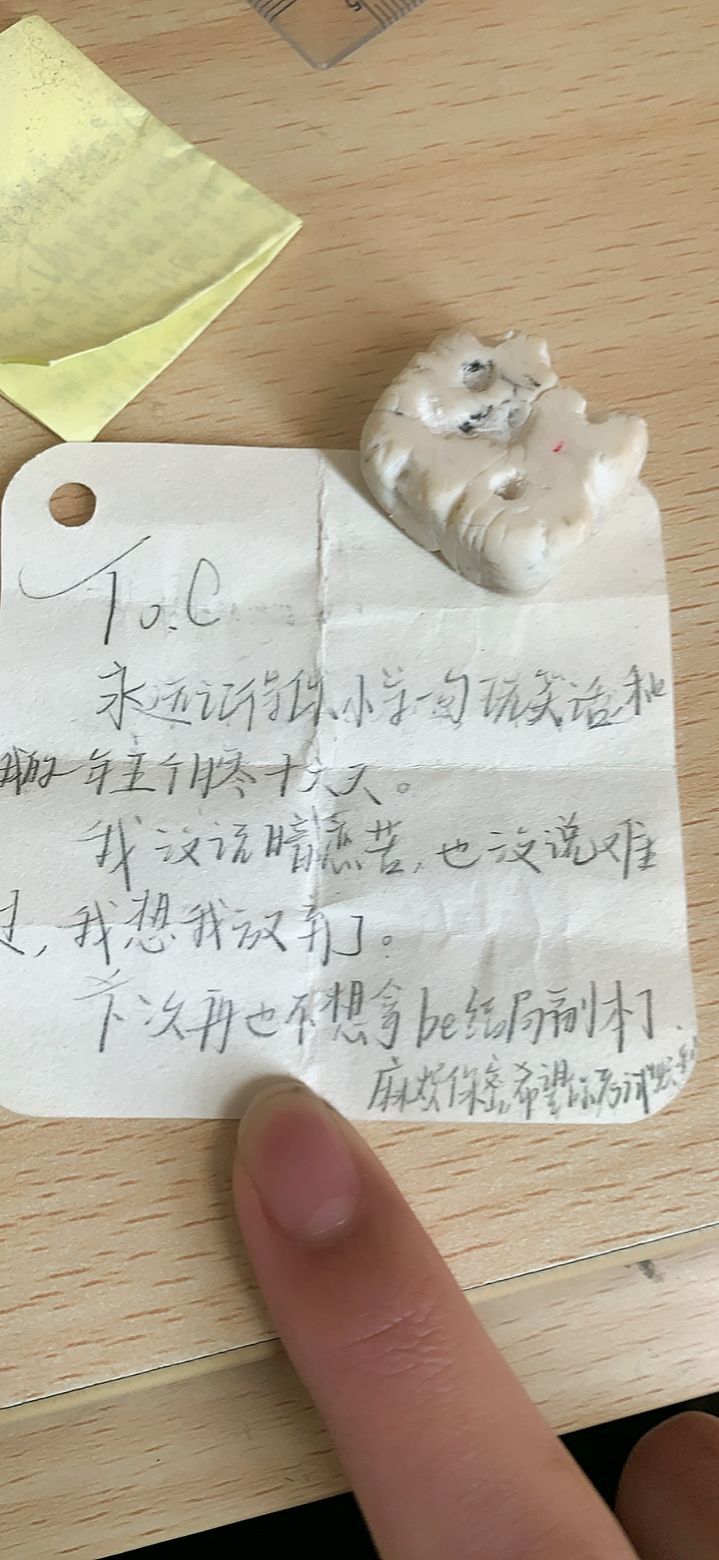 To.C
永远记得你小学一句玩笑话和
我的一年主个月零十六天。
我没说暗恋苦,也没说难
过,我想我放弃了。
下次再也不想拿be结局剧本了.
麻烦保密,希望你
5